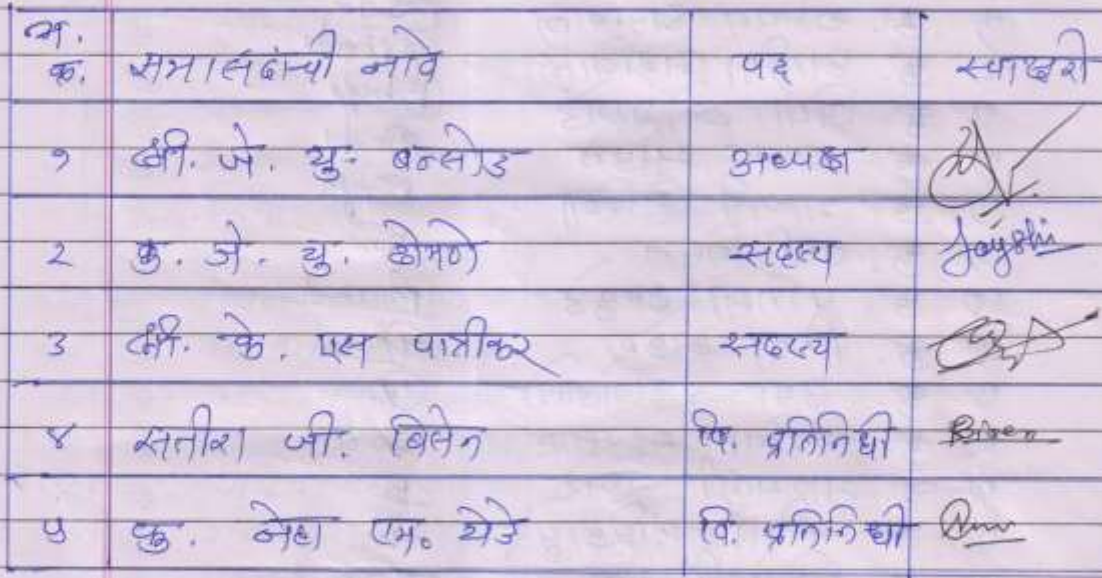 अ.
क्र. सभासदांची नावे पद स्वाक्षरी
१ श्री. जे. यु. बन्सोड अध्यक्ष
२ कु. जे. यु. ठोमणे सदस्य Jayshi
३ श्री. के. एस पात्रीकर सदस्य
४ सतीश जी. बिसेन वि. प्रतिनिधी Bisen
५ कु. नेहा एम. येडे वि. प्रतिनिधी